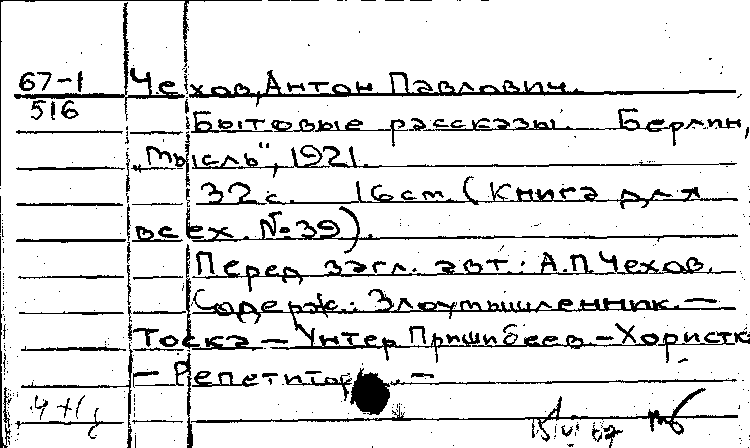 67-1 Чехов, Антон Павлович.
516
Бытовые рассказы. Берлин,
„Мысль", 1921.
32 с. 16 см. (Книга для
всех. №39).
Перед загл. авт.: А.П.Чехов.
Содерж.: Злоумышленник. —
Тоска — Унтер Пришибеев — Хористка
— Репетитор. —